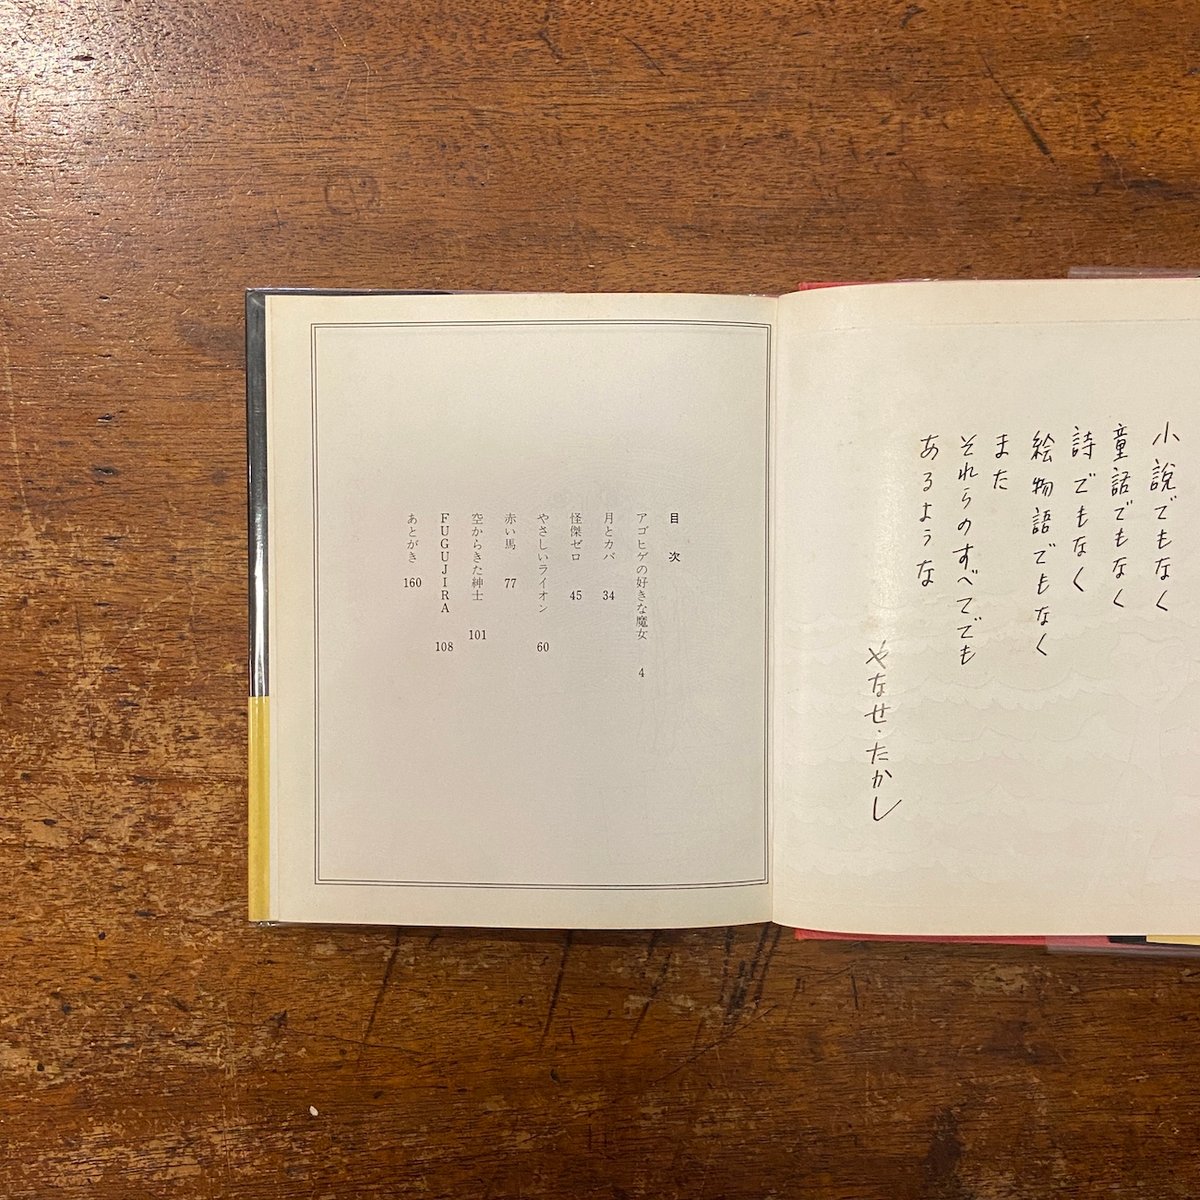 小説でもなく
童話でもなく
詩でもなく
絵物語でもなく
また
それらのすべてでも
あるような
やなせ・たかし
目次
アゴヒゲの好きな魔女 4
月とカバ 34
怪傑ゼロ 45
やさしいライオン 60
赤い馬 77
空からきた紳士 101
FUGUJIRA 108
あとがき 160